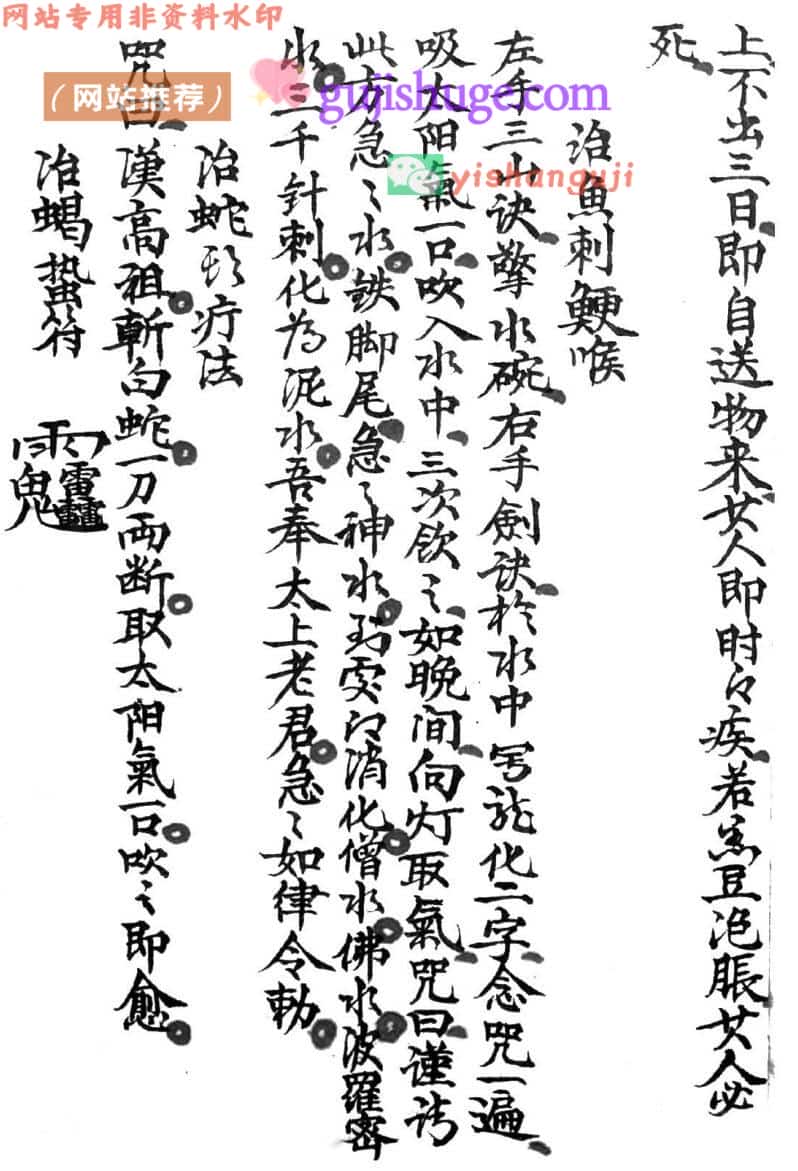 网站专用非资料水印
（网站推荐）
gujishuge.com
yishanguji
上不出三日即自送物来女人即时口疾若黑豆泡脹女人必
死
治魚刺鯁喉
左手三山诀擎水碗右手劍诀於水中写龍化二字念咒一遍
吸太阳氣一口吹入水中三次飲之如晚间向灯取氣咒曰谨请
此方急〻水鉄脚尾急〻神水到䖏口消化僧水佛水波羅密
水三千針刺化为泥水吾奉太上老君急〻如律令勅
治蛇頭疔法
咒曰漢高祖斬白蛇一刀両断取太阳氣一口吹之即愈
治蝎蜇符